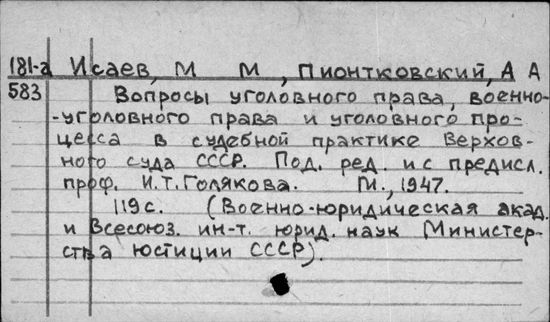 181-а Исаев, М М, Пионтковский, А А
583 Вопросы уголовного права, военно-
-уголовного права и уголовного про-
цесса в судебной практике Верхов-
ного суда СССР. Под. ред. и с предисл.
проф. И.Т. Голякова. М., 1947.
119 с. (Военно-юридическая акад.
и Всесоюз. ин-т. юрид. наук Министер-
ства юстиции СССР).